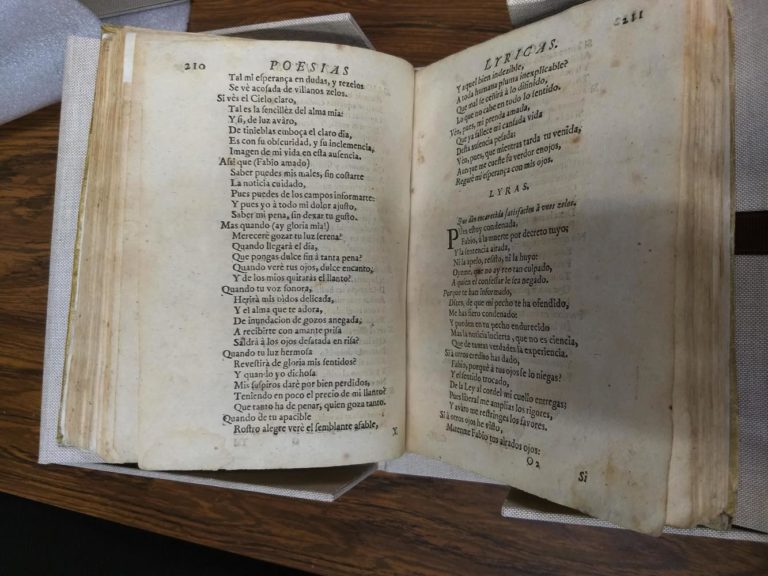 210 POESIAS
Tal mi esperança en dudas, y rezelos
Se vè acosada de villanos zelos.
Si vès el Cielo claro,
Tal es la sencillèz del alma mia:
Y si, de luz avàro,
De tinieblas emboça el claro dia,
Es con su obscuridad, y su inclemencia,
Imagen de mi vida en esta ausencia.
Assi que (Fabio amado)
Saber puedes mis males, sin costarte
La noticia cuidado,
Pues puedes de los campos informarte:
Y pues yo à todo mi dolor ajusto,
Saber mi pena, sin dexar tu gusto.
Mas quando (ay gloria mia!)
Mereceré gozar tu luz serena?
Quando llegarà el dia,
Que pongas dulce fin à tanta pena?
Quando veré tus ojos, dulce encanto,
Y de los mios quitaràs el llanto?
Quando tu voz sonora,
Herirà mis oidos delicada,
Y el alma que te adora,
De inundacion de gozos anegada,
A recibirte con amante prisa
Saldrà à los ojos desatada en risa?
Quando tu luz hermosa
Revestirà de gloria mis sentidos?
Y quando yo dichosa
Mis suspiros daré por bien perdidos,
Teniendo en poco el precio de mi llanto?
Que tanto ha de penar, quien goza tanto.
Quando de tu apacible
Rostro alegre veré el semblante afable,
LYRICAS. 211
Y aquel bien indezible,
A toda humana pluma inexplicable?
Que mal se ceñirà à lo difinido,
Lo que no cabe en todo lo sentido.
Vèn, pues, mi prenda amada,
Que ya fallece mi cansada vida
Desta ausencia pesada:
Vèn, pues, que mientras tarda tu venida,
Aunque me cueste su verdor enojos,
Regaré mi esperança con mis ojos.
LYRAS.
Que dàn encarecida satisfacion à unos zelos.
PUes estoy condenada,
Fabio, à la muerte por decreto tuyo;
Y la sentencia airada,
Ni la apelo, resisto, ni la huyo:
Oyeme, que no ay reo tan culpado,
A quien el confessar le sea negado.
Porque te han informado,
Dizes, de que mi pecho te ha ofendido,
Me has fiero condenado:
Y pueden en tu pecho endurecido
Mas la noticia incierta, que no es ciencia,
Que de tantas verdades la experiencia.
Si à otros credito has dado,
Fabio, porquè à tus ojos se lo niegas?
Y el sentido trocado,
De la Ley al cordel mi cuello entregas;
Pues liberal me amplias los rigores,
Y avaro me restringes los favores.
Si à otros ojos he visto,
Matenme Fabio tus airados ojos:
O2
Si